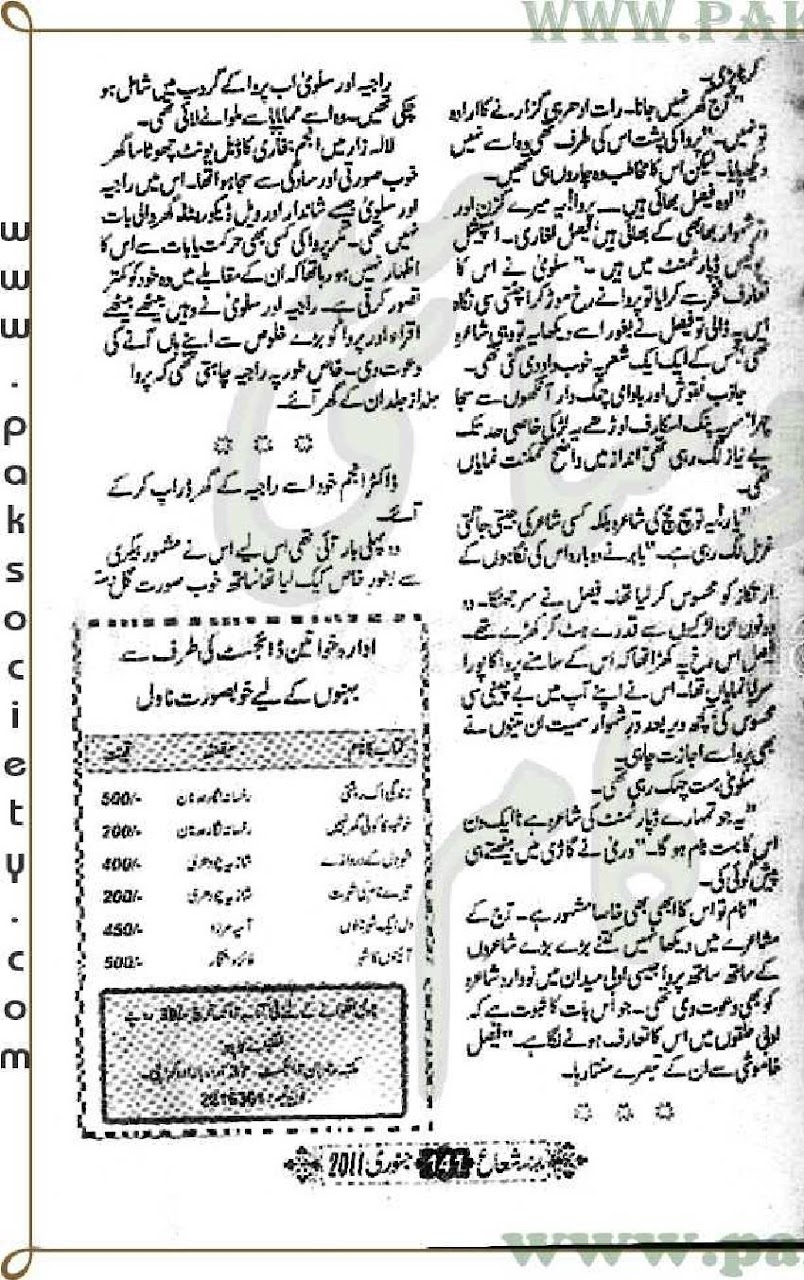 WWW.PAK
کر پڑی۔
"آج گھر نہیں جانا۔ رات ادھر ہی گزارنے کا ارادہ
تو نہیں۔" پروا کی پشت اس کی طرف تھی وہ اسے نہیں
دیکھ پایا۔ لیکن اس کا مخاطب وہ چاروں ہی تھیں۔
"اوہ فیصل بھائی ہیں۔۔۔ پروا! یہ میرے کزن اور
در شہوار بھابھی کے بھائی ہیں فیصل غفاری۔ اسپیشل
پولیس ڈپارٹمنٹ میں ہیں۔" سلویٰ نے اس کا
تعارف فخر سے کرایا تو پروا نے رخ موڑ کر اچٹتی سی نگاہ
اس پہ ڈالی تو فیصل نے بغور اسے دیکھا یہ تو وہی شاعرہ
تھی جس کے ایک ایک شعر پہ خوب داد دی گئی تھی۔
جاذب نقوش اور بادامی چمک دار آنکھوں سے سجا
چہرا سر پہ پنک اسکارف اوڑھے یہ لڑکی خاصی حد تک
بے نیاز لگ رہی تھی انداز میں واضح تمکنت نمایاں
تھی۔
"یار! یہ تو سچ مچ کی شاعرہ بلکہ کسی شاعر کی جیتی جاگتی
غزل لگ رہی ہے۔" یاہر نے دوبارہ اس کی نگاہوں کے
ارتکاز کو محسوس کر لیا تھا۔ فیصل نے سر جھٹکا۔ وہ
دونوں ان لڑکیوں سے قدرے ہٹ کر کھڑے تھے۔
فیصل اس رخ پہ کھڑا تھا کہ اس کے سامنے پروا کا پورا
سراپا نمایاں تھا۔ اس نے اپنے آپ میں بے چینی سی
محسوس کی کچھ دیر بعد در شہوار سمیت ان تینوں نے
بھی پروا سے اجازت چاہی۔
سلویٰ بہت چہک رہی تھی۔
"یہ جو تمہارے ڈپارٹمنٹ کی شاعرہ ہے نا ایک دن
اس کا بہت نام ہو گا۔" وری نے گاڑی میں بیٹھتے ہی
پیش گوئی کی۔
"نام تو اس کا ابھی بھی خاصا مشہور ہے۔ آج کے
مشاعرے میں دیکھا نہیں کتنے بڑے بڑے شاعروں
کے ساتھ ساتھ پروا جیسی ادبی میدان میں نووارد شاعرہ
کو بھی دعوت دی تھی۔ جو اس بات کا ثبوت ہے کہ
ادبی حلقوں میں اس کا تعارف ہونے لگا ہے۔" فیصل
خاموشی سے ان کے تبصرے سنتا رہا۔
راجیہ اور سلویٰ اب پروا کے گروپ میں شامل ہو
چکی تھیں۔ وہ اسے مما پاپا سے ملوانے لائی تھی۔
لالہ زار میں انجم غفاری کا ڈبل یونٹ چھوٹا سا گھر
خوب صورتی اور سادگی سے سجا ہوا تھا۔ اس میں راجیہ
اور سلویٰ جیسے شاندار اور ویل ڈیکوریٹڈ گھر والی بات
نہیں تھی۔ مگر پروا کی کسی بھی حرکت یا بات سے اس کا
اظہار نہیں ہو رہا تھا کہ ان کے مقابلے میں وہ خود کو کمتر
تصور کرتی ہے۔ راجیہ اور سلویٰ نے وہیں بیٹھے بیٹھے
اقراء اور پروا کو بڑے خلوص سے اپنے ہاں آنے کی
دعوت دی۔ خاص طور پہ راجیہ چاہتی تھی کہ پروا
جلد از جلد ان کے گھر آئے۔
ڈاکٹر انجم خود اسے راجیہ کے گھر ڈراپ کر کے
آئے۔
وہ پہلی بار آئی تھی اس لیے اس نے مشہور بیکری
سے بطور خاص کیک لیا تھا ساتھ خوب صورت گل دستہ
ادارہ خواتین ڈائجسٹ کی طرف سے
بہنوں کے لیے خوبصورت ناول
کتاب کا نام مصنفہ قیمت
زندگی اک روشنی رخسانہ نگار عدنان 500/-
خوشبو کا کوئی گھر نہیں رخسانہ نگار عدنان 200/-
شہر دل کے دروازے شازیہ چودھری 400/-
تیرے نام کی شہرت شازیہ چودھری 200/-
دل ایک شہر جنوں آسیہ مرزا 450/-
آئینوں کا شہر فائزہ افتخار 500/-
2216361
ماہنامہ شعاع 141 جنوری 2011
www.paksociety.com
www.pa